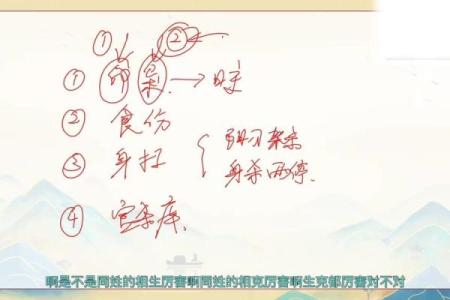 ① ②
① 印 枭 →
② 食伤
③ 身
身杀两停.
④ 官杀库.
啊是不是同姓的相生厉害啊同姓的相克厉害啊生克都厉害对不对